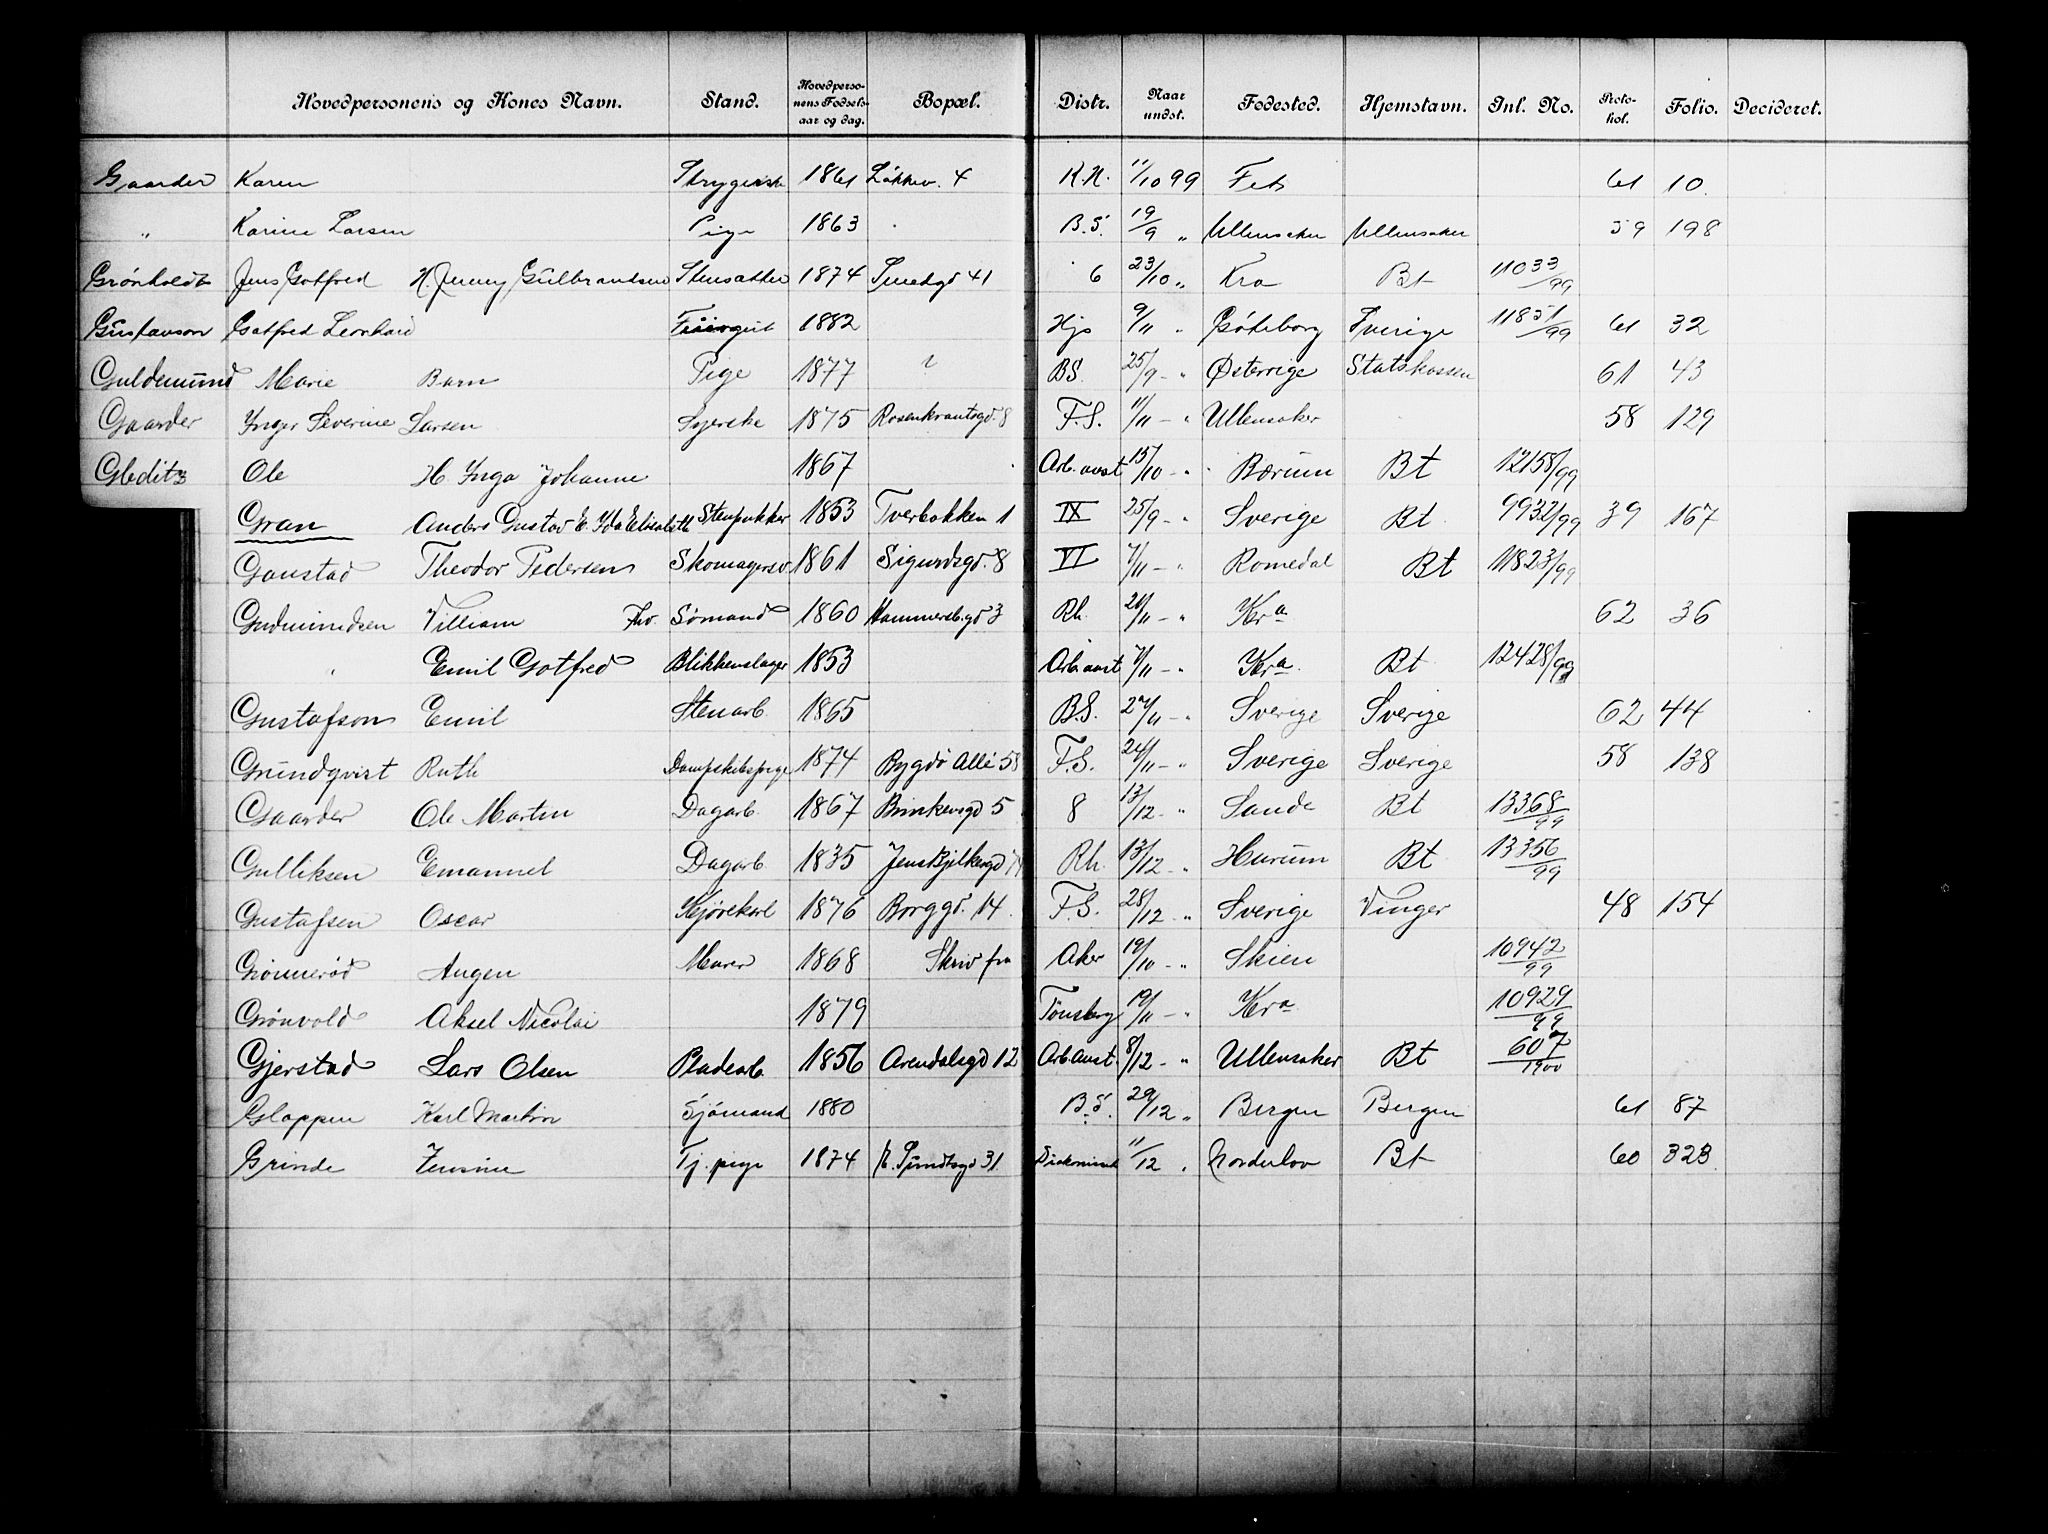 Hovedpersonens og Kones Navn. Stand. Hovedpersonens Fødselsaar og dag. Bopæl. Distr. Naar undst. Fødested. Hjemstavn. Inl. No. Protokol. Folio. Decideret.
Gaarder Karen Strygerske 1861 Løkkev. 4 K.H. 11/10 99 Fet 61 10.
" Karine Larsen Pige 1863 B.S. 19/9 " Ullensaker Ullensaker 59 198
Grönholdt Jens Gotfred H. Jenny Gulbrandsen 1874 Smedgd 41 6 23/10 " Kra Bt 11033/99
Gustavson Gotfred Leonhard 1882 Hjs 9/11 " Göteborg Sverige 11851/99 61 32
Guldemund Marie Barn Pige 1877 BS. 25/9 - " Østerrige Statskassen 61 43
Gaarder Inger Severine Larsen Syerske 1875 Rosenkrantsgd. 8 F.S. 11/11 - " Ullensaker 58 129
Gleditz Ole H. Inga Johanne 1867 Arb. anst 15/10 - " Bærum Bt 12158/99
Gran Anders Gustav & Ida Elisabeth Stenpukker 1853 Tverbakken 1 IX 25/9 - " Sverige Bt 9932/99 39 167
Gaustad Theodor Pedersen Skomagersv. 1861 Sigurdsgd. 8 VI 7/11 - " Romedal Bt 11823/99
Gudmundsen Villiam Fhv. Sømand 1860 Hammersb.gd 3 Rh. 20/11 - " Kra 62 36
" Emil Gotfred Blikkenslager 1853 Arb.anst 7/11 - " Kra. Bt 12428/99
Gustafson Emil Stenarb. 1865 B.S. 27/11 - " Sverige Sverige 62 44
Grundqvist Ruth Dampskibspige 1874 Bygdö Allé 58 F.S. 24/11 - " Sverige Sverige 58 138
Gaarder Ole Martin Dagarb. 1867 Brinkensgd 5 8 13/12 - " Sande Bt 13368/99
Gulliksen Emanuel Dagarb 1835 Jens Bjelkesgd Rh. 13/12 - " Hurum Bt 13356/99
Gustafsen Oscar Kjørekarl 1876 Borggd. 14 F.S. 28/12 - " Sverige Vinger 48 154
Grönnerød Murer 1868 Skriv fra Aker 19/10 - " Skien 10942/99
Grönvold Aksel Nicolai 1879 Tønsberg 19/11 - " Kra 10929/99
Gjerstad Lars Olsen Pladearb. 1856 Arendalsgd 12 Arb.anst. 8/12 - " Ullensaker Bt 607/1900
Gloppen Karl Martin Sjømand 1880 B.S. 29/12 " Bergen Bergen 61 87
Grinde Jensine Tj. pige 1874 E. Sundtsgd 31 11/12 " Bt 60 323